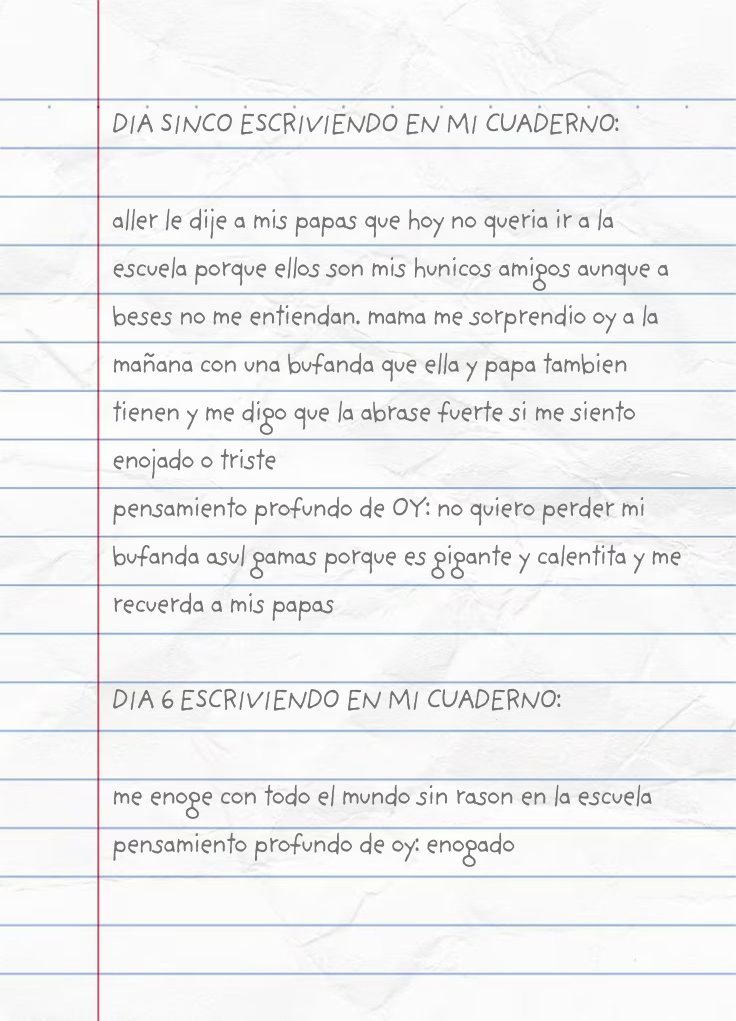 DIA SINCO ESCRIVIENDO EN MI CUADERNO:
aller le dije a mis papas que hoy no queria ir a la
escuela porque ellos son mis hunicos amigos aunque a
beses no me entiendan. mama me sorprendio oy a la
mañana con una bufanda que ella y papa tambien
tienen y me digo que la abrase fuerte si me siento
enojado o triste
pensamiento profundo de OY: no quiero perder mi
bufanda asul gamas porque es gigante y calentita y me
recuerda a mis papas
DIA 6 ESCRIVIENDO EN MI CUADERNO:
me enoge con todo el mundo sin rason en la escuela
pensamiento profundo de oy: enogado